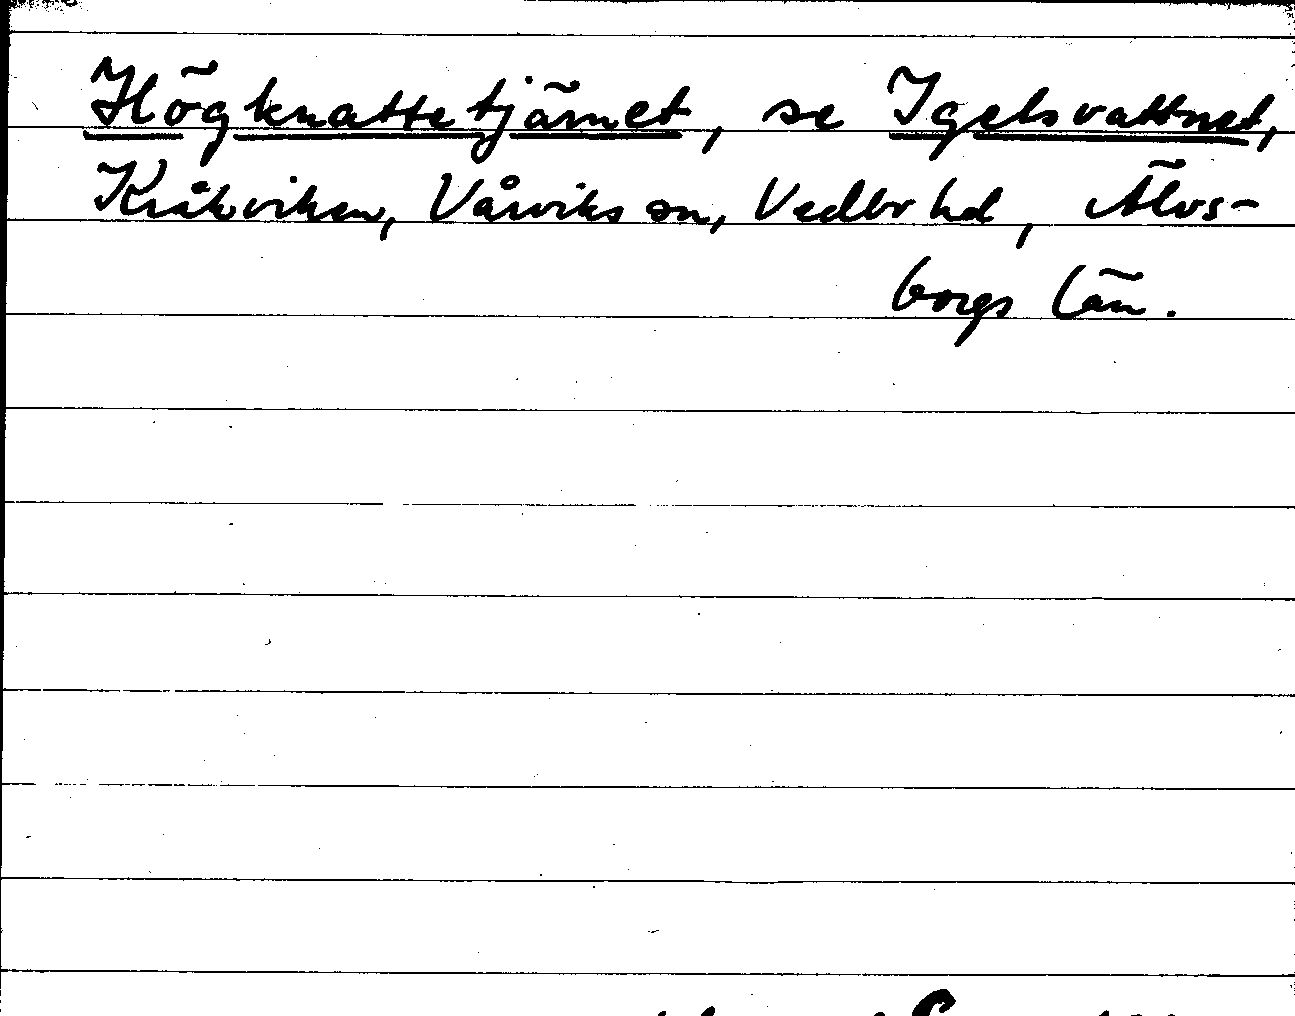 Högknattetjärnet, se Igelsvattnet,
Kråkviken, Vårviks sn, Vedbr hd, Älvs-
borgs län.